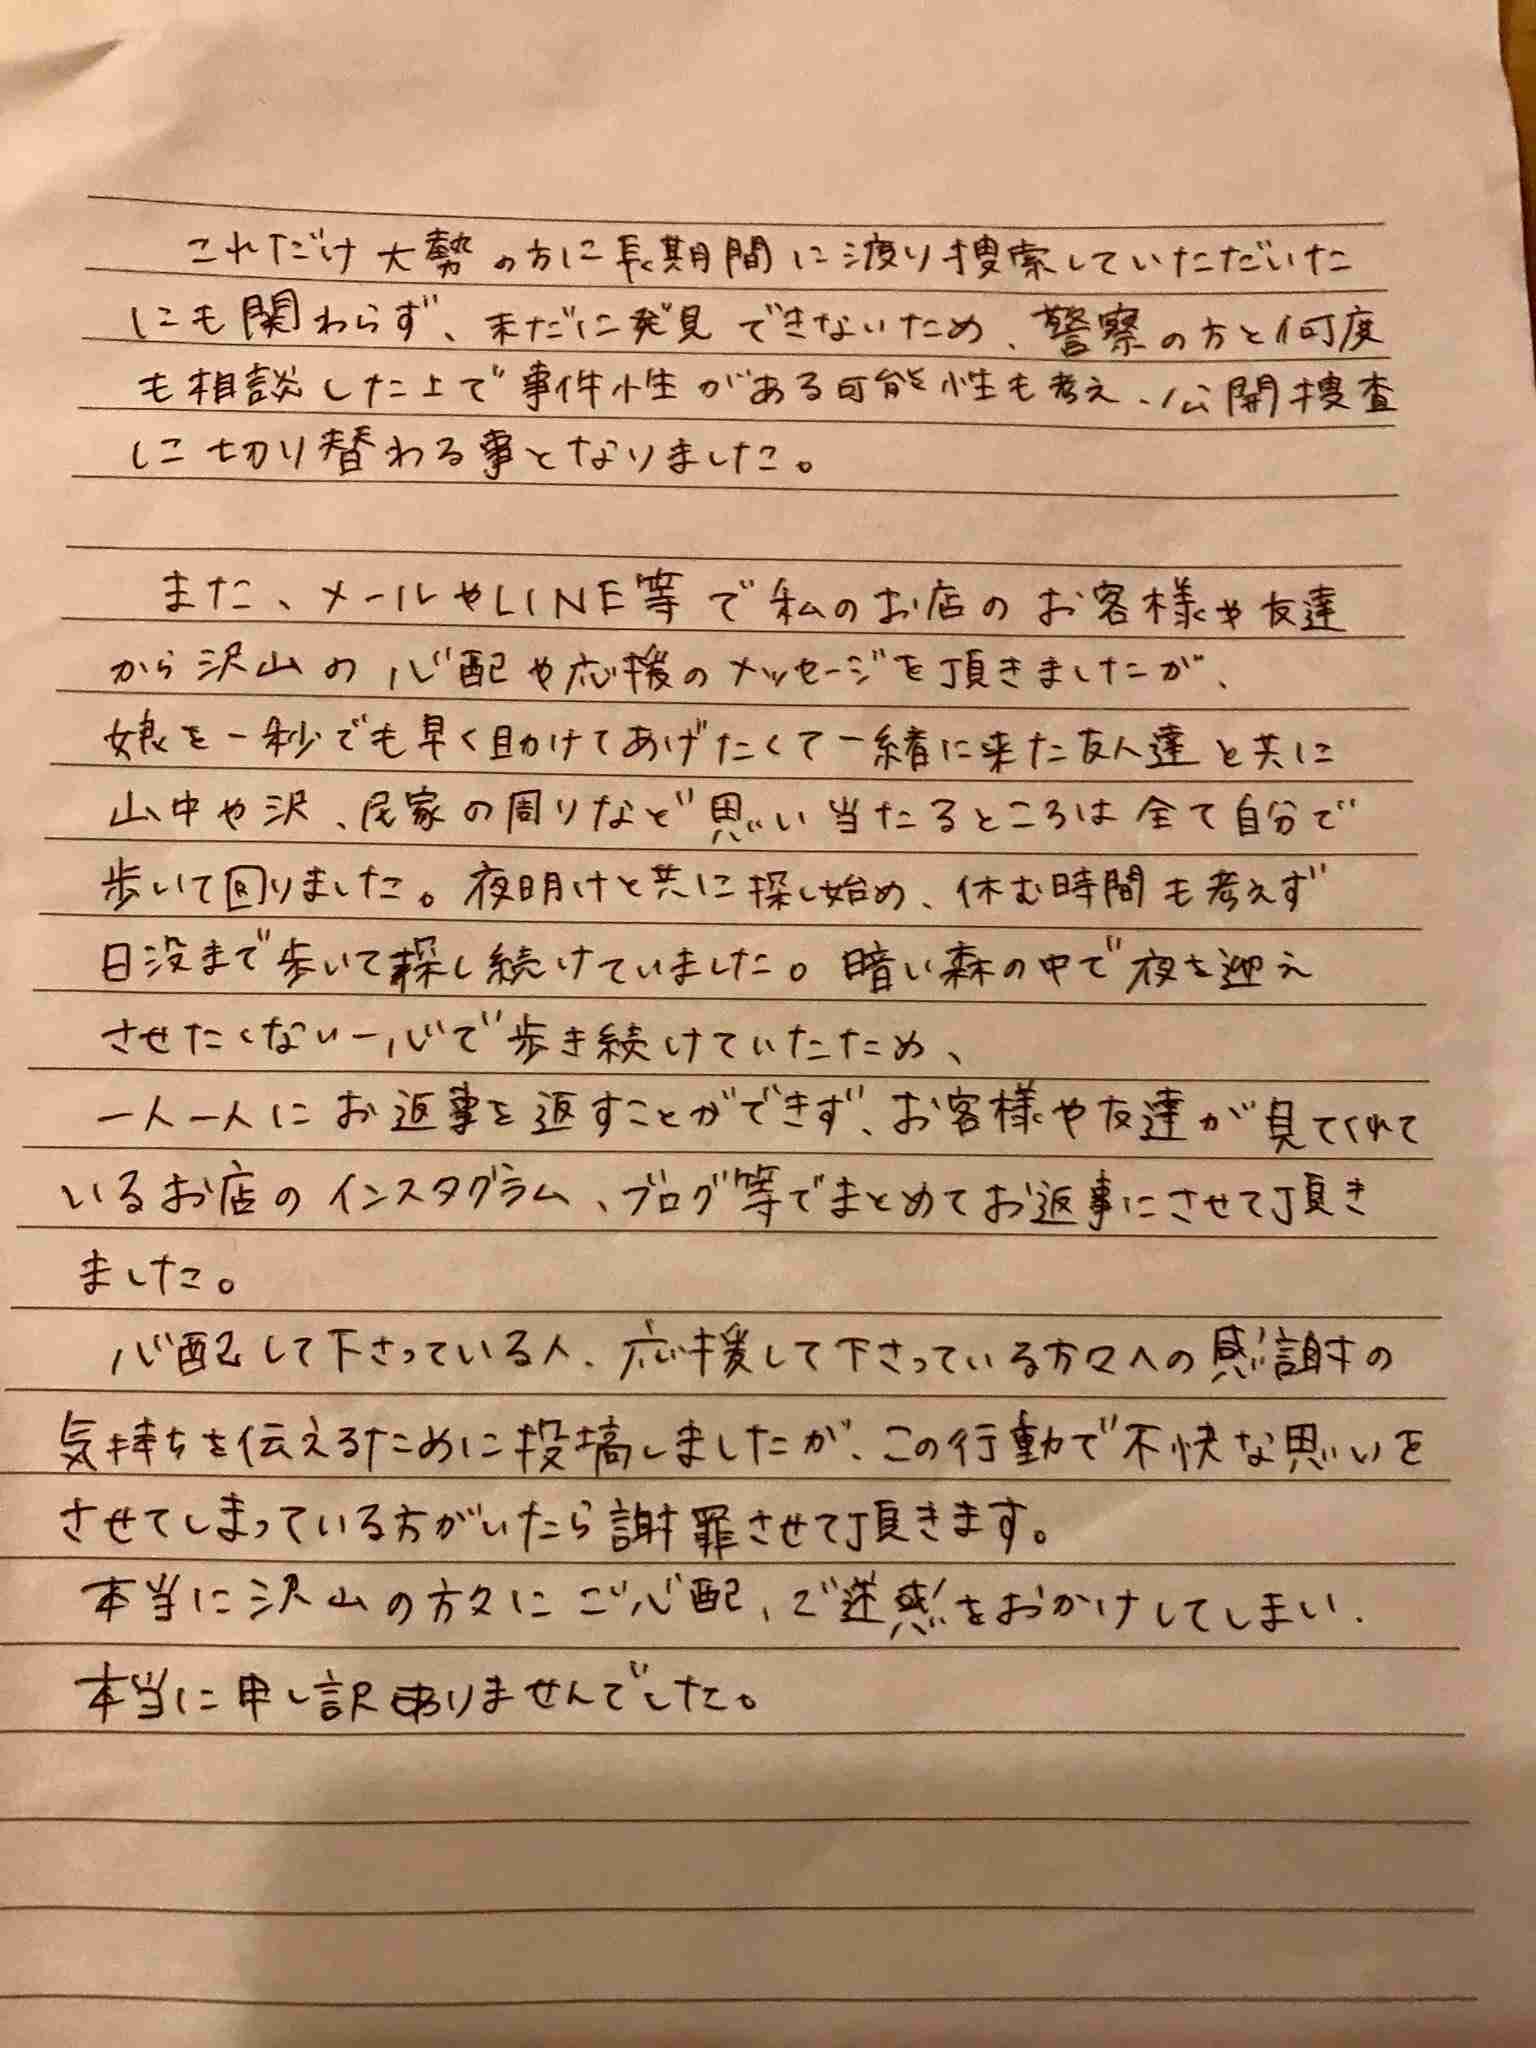 これだけ大勢の方に長期間に渡り捜索していただいた
にも関わらず、未だに発見できないため、警察の方と何度
も相談した上で事件性がある可能性も考え、公開捜査
に切り替わる事となりました。
また、メールやLINE等で私のお店のお客様や友達
から沢山の心配や応援のメッセージを頂きましたが、
娘を一秒でも早く助けてあげたくて一緒に来た友人達と共に
山中や沢、民家の周りなど思い当たるところは全て自分で
歩いて回りました。夜明けと共に探し始め、休む時間も考えず
日没まで歩いて探し続けていました。暗い森の中で夜を迎え
させたくない一心で歩き続けていたため、
一人一人にお返事を返すことができず、お客様や友達が見てくれて
いるお店のインスタグラム、ブログ等でまとめてお返事にさせて頂き
ました。
心配して下さっている人、応援して下さっている方々への感謝の
気持ちを伝えるために投稿しましたが、この行動で不快な思いを
させてしまっている方がいたら謝罪させて頂きます。
本当に沢山の方々にご心配、ご迷惑をおかけしてしまい、
本当に申し訳ありませんでした。